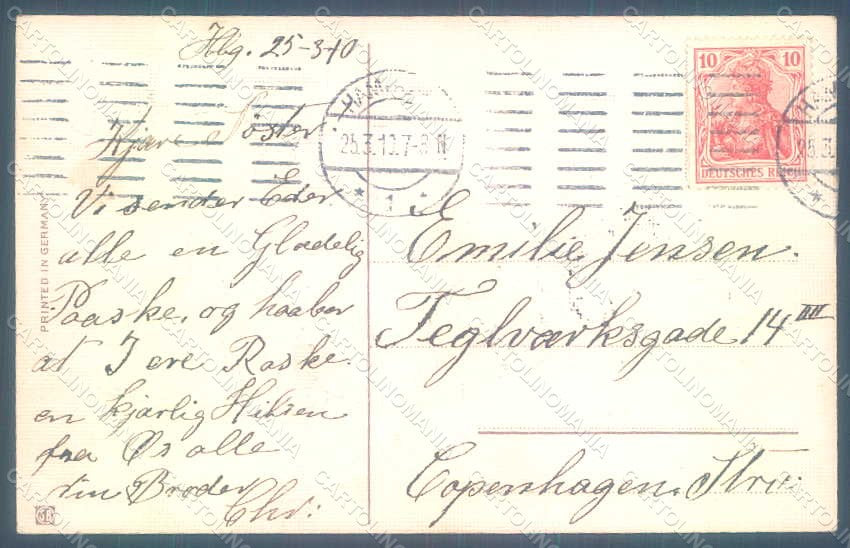 Hbg. 25-3-10
Kjære Søster
Vi sender Eder
alle en Glædelig
Paaske. og haaber
at I ere Raske.
en kjærlig Hilsen
fra Os alle
din Broder
Chr:
PRINTED IN GERMANY
HAMBURG
25.3.10.7-8 N
* 1 *
10 10
DEUTSCHES REICH
HAM
25.3.
Emilie Jensen.
Teglværksgade 14 IIII
Copenhagen.
CARTOLINOMANIA